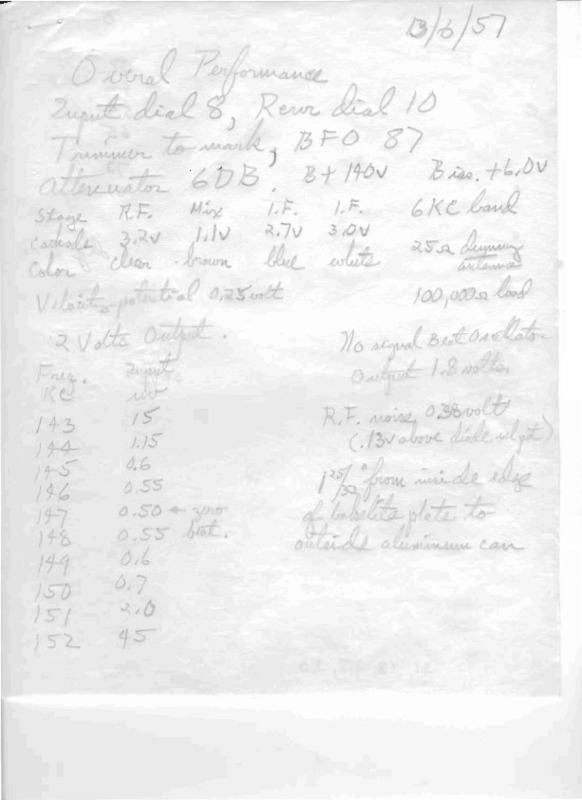 13/6/57
Overal Performance
Input dial 8, Rcvr dial 10
Trimmer to mark, BFO 87
Attenuator 6DB. B+ 140v Bias. +6.0v
Stage R.F. Mix I.F. I.F. 6KC band
Cathode 3.2v 1.1v 2.7v 3.0v 25Ω dummy
antenna
Color clear brown blue white
Velocity potential 0.25 volt 100,000Ω load
2 Volts Output. No signal Beat Oscillator
Output 1.8 volts
Freq. Input
KC uv
143 15
144 1.15
145 0.6
146 0.55
147 0.50 ← zero
148 0.55 beat.
149 0.6
150 0.7
151 2.0
152 45
R.F. noise 0.38 volt
(.13v above diode vel pot)
1 25/32" from inside edge
of bakelite plate to
outside aluminum can